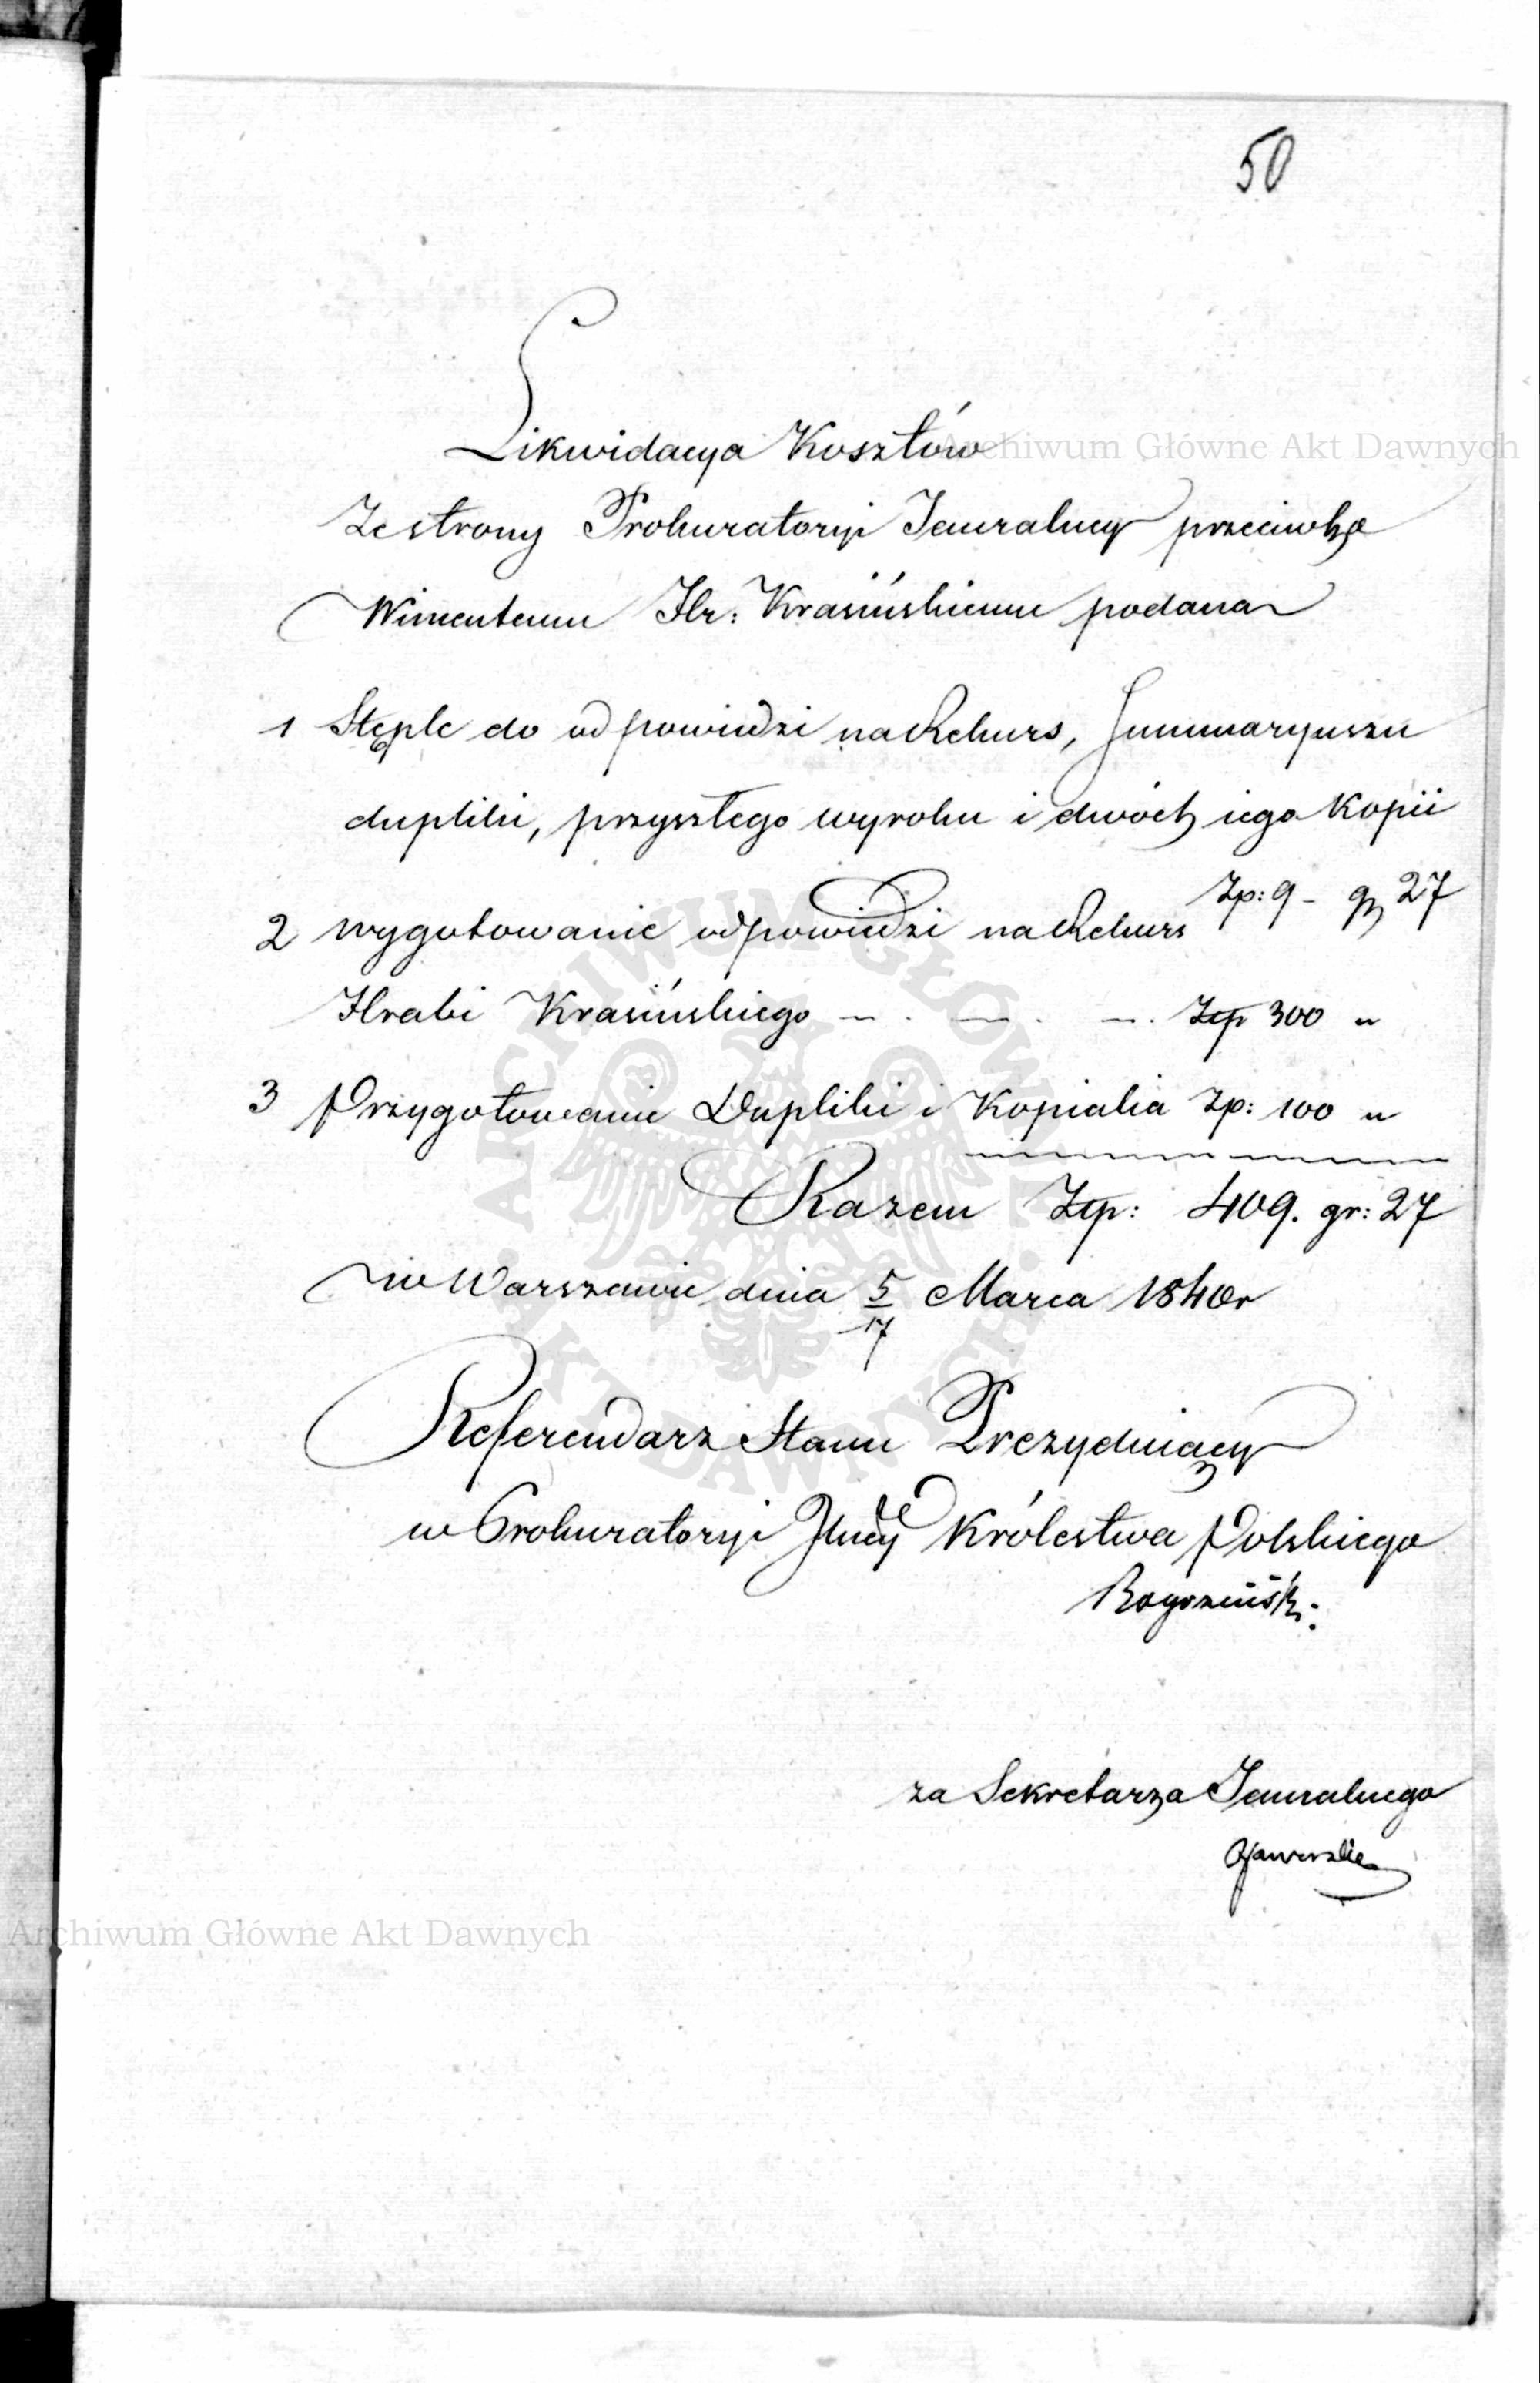 50
Likwidacya Kosztów
Ze strony Prokuratoryi Jeneralney przeciwko
Wincentemu Hr: Krasińskiemu podana
1 Stęple do odpowiedzi na Rekurs, Summaryuszu
dupliki, przyszłego wyroku i dwóch iego Kopii
Zp: 9 - gr 27
2 wygotowanie odpowiedzi na Rekurs
Hrabi Krasińskiego — . — . — . Złp 300 "
3 Przygotowanie Dupliki i Kopialia Zp: 100 "
Razem Złp: 409. gr: 27
w Warszawie dnia 5/17 Marca 1840 r
Referendarz Stanu Prezyduiący
w Prokuratoryi Jlney Królestwa Polskiego
za Sekretarza Jeneralnego
Archiwum Główne Akt Dawnych
Archiwum Główne Akt Dawnych
ARCHIWUM GŁÓWNE AKT DAWNYCH